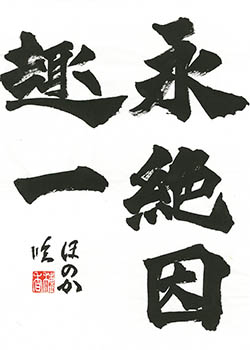 永絶因
趣一
ほのか